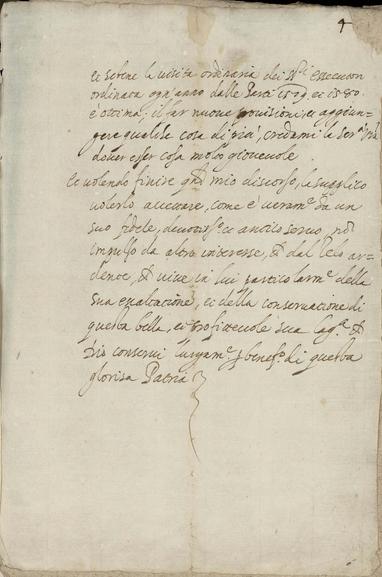 4
et sebene la visita ordinaria dei Sri. essecutori
ordinata ogn'anno dalle Parti 1579. et 1580.
è ottima; il far nuove provisioni, et aggiun-
gere qualche cosa di più, credami la Serà. Vra.
dover esser cosa molto giovevole.
Et volendo finire qsto mio discorso, la supplico
volerlo accettare, come è veramte. da un
suo fidele, devotissº. et antico servo, nõ
impulso da altro interesse, che dal zelo ar-
dente, che vive in lui particolarmte. della
sua exaltatione, et della conservatione di
questa bella, et profittevole sua
Dio conservi lungamte. benefº. di questa
gloriosa Patria